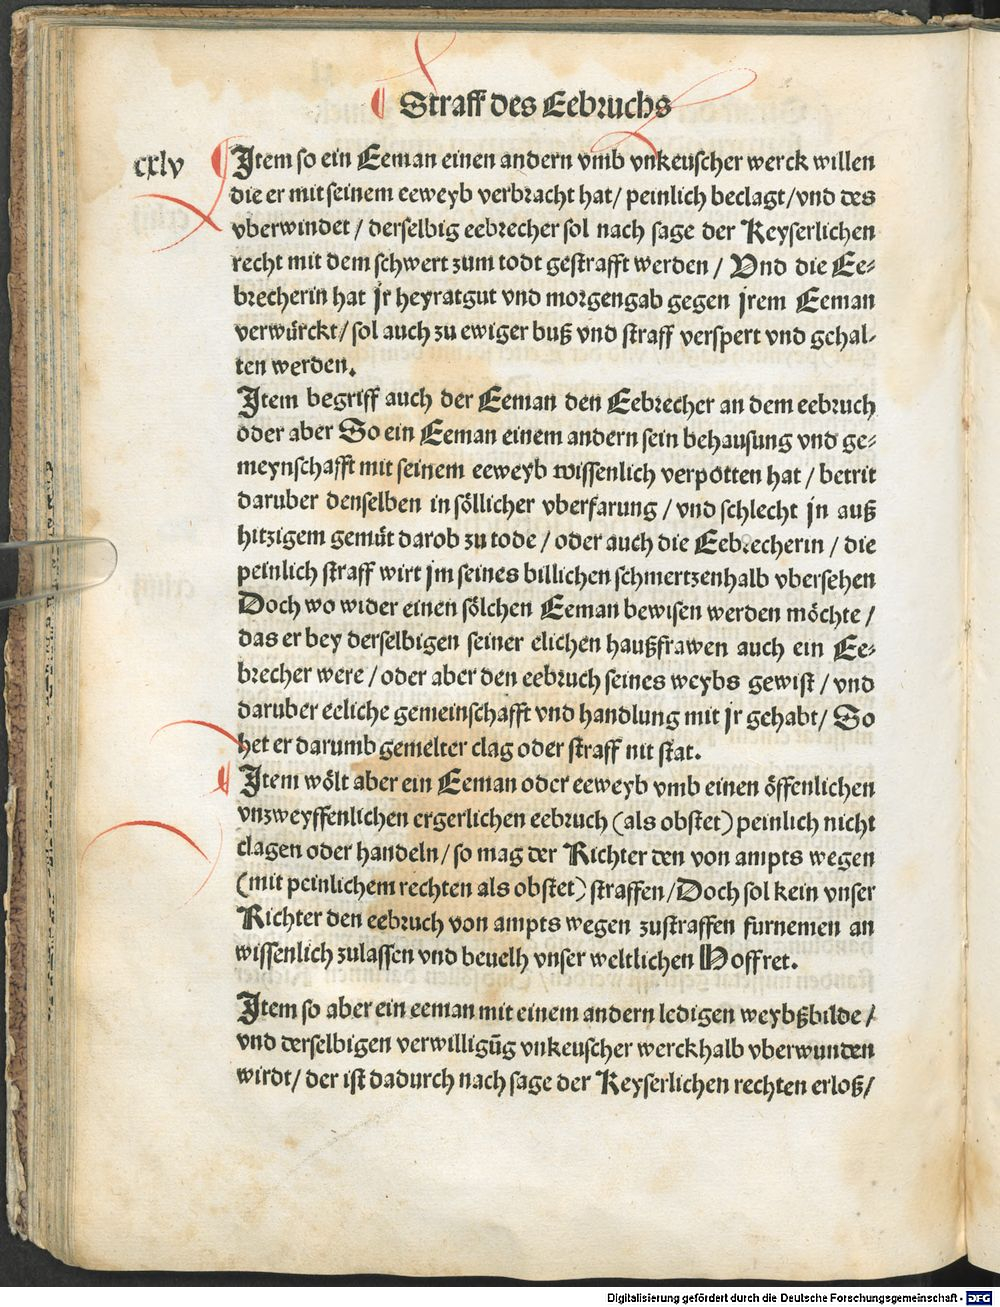 ¶ Straff des Eebruchs
cxlv ¶ Item so ein Eeman einen andern vmb vnkeuscher werck willen
die er mit seinem eeweyb verbracht hat/ peinlich beclagt/vnd des
vberwindet / derselbig eebrecher sol nach sage der Keyserlichen
recht mit dem schwert zum todt gestrafft werden / Vnd die Ee⸗
brecherin hat jr heyratgut vnd morgengab gegen jrem Eeman
verwürckt/ sol auch zu ewiger buß vnd straff verspert vnd gehal⸗
ten werden.
Item begriff auch der Eeman den Eebrecher an dem eebruch
oder aber So ein Eeman einem andern sein behausung vnd ge⸗
meynschafft mit seinem eeweyb wissenlich verpotten hat / betrit
daruber denselben in söllicher vberfarung / vnd schlecht jn auß
hitzigem gemüt darob zu tode / oder auch die Eebrecherin / die
peinlich straff wirt jm seines billichen schmertzenhalb vbersehen
Doch wo wider einen sölchen Eeman bewisen werden möchte /
das er bey derselbigen seiner elichen haußfrawen auch ein Ee⸗
brecher were / oder aber den eebruch seines weybs gewist / vnd
daruber eeliche gemeinschafft vnd handlung mit jr gehabt/ So
het er darumb gemelter clag oder straff nit stat.
¶ Item wölt aber ein Eeman oder eeweyb vmb einen öffenlichen
vnzweyffenlichen ergerlichen eebruch (als obstet) peinlich nicht
clagen oder handeln/ so mag der Richter den von ampts wegen
(mit peinlichem rechten als obstet) straffen/Doch sol kein vnser
Richter den eebruch von ampts wegen zustraffen furnemen an
wissenlich zulassen vnd beuelh vnser weltlichen Hoffret.
Item so aber ein eeman mit einem andern ledigen weybßbilde /
vnd derselbigen verwilligūg vnkeuscher werckhalb vberwunden
wirdt/ der ist dadurch nach sage der Keyserlichen rechten erloß/
Digitalisierung gefördert durch die Deutsche Forschungsgemeinschaft - DFG